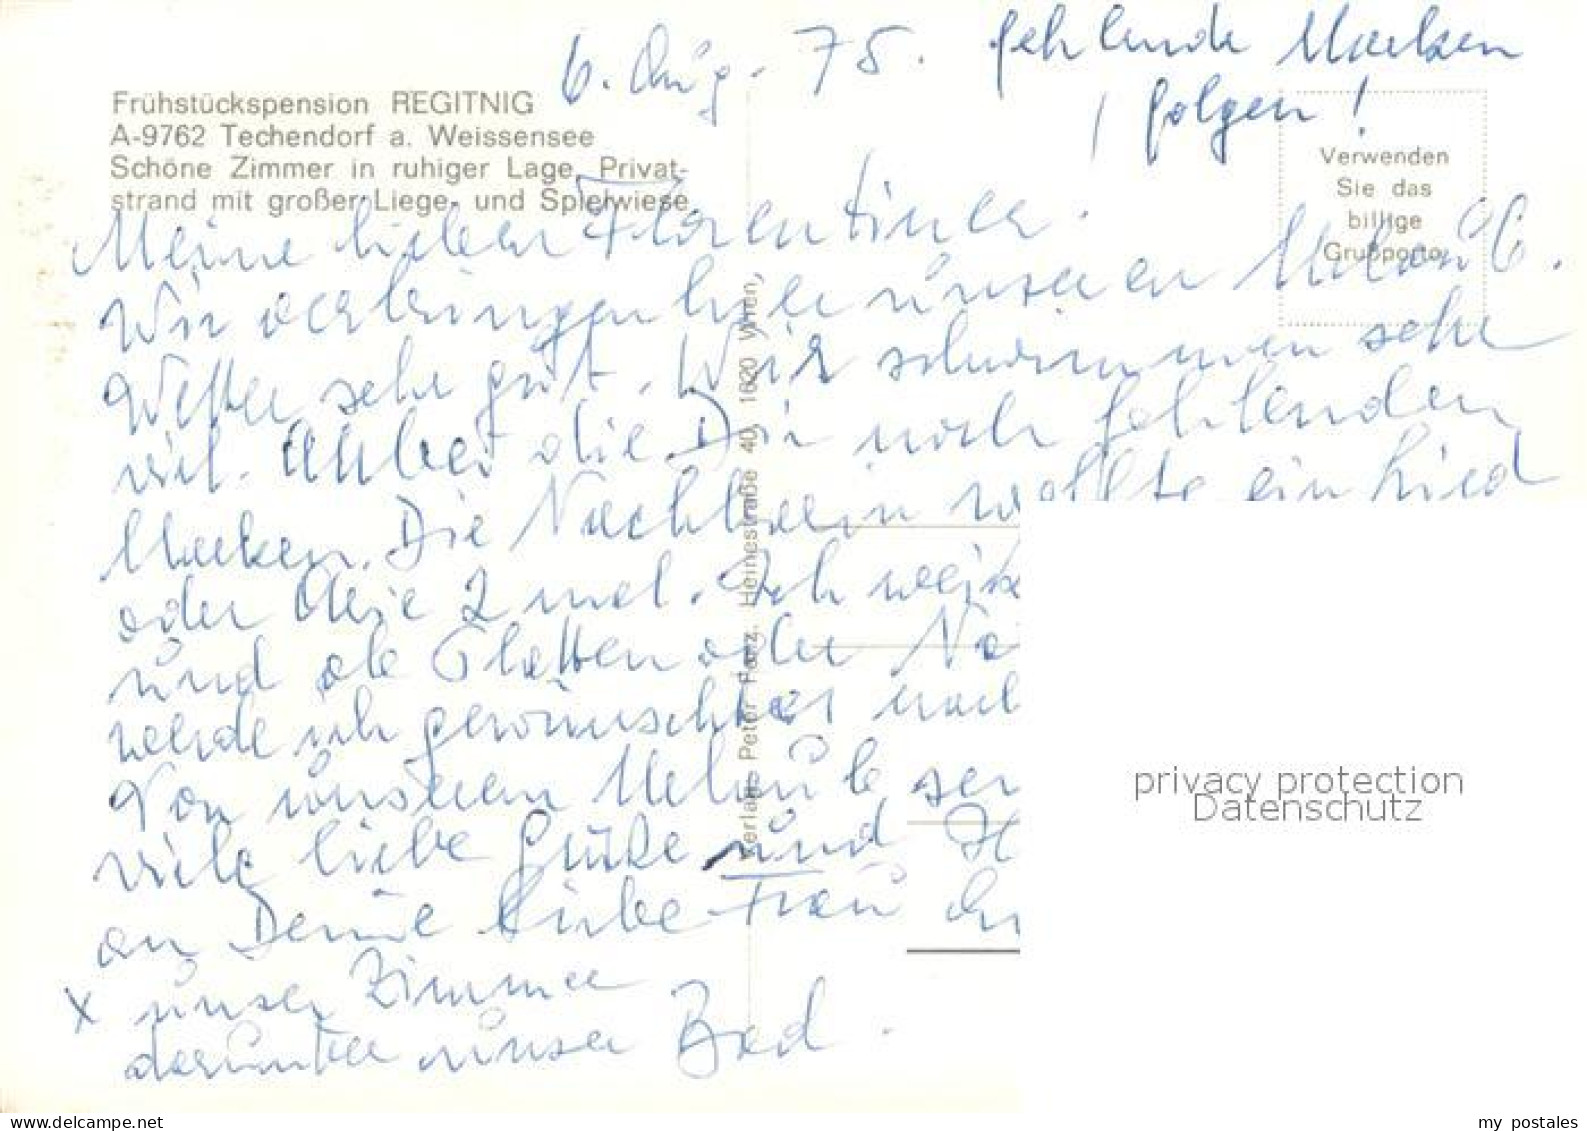 6. Aug. 75. fehlende Marken
folgen!
Frühstückspension REGITNIG
A-9762 Techendorf a. Weissensee
Schöne Zimmer in ruhiger Lage, Privat-
strand mit großer Liege- und Spielwiese
Verwenden
Sie das
billige
Grußporto
Meine lieben Florentiner.
Wir verbringen hier unseren Urlaub.
Wetter sehr gut. Wir schwimmen sehr
viel. die Dir noch fehlenden
Marken. Die Nachbarin wollte ein Lied
oder 2 mal. Ich
und ob Platten oder
werde ich gewünschtes
Von unserem Urlaub
viele liebe Grüße und
an Deine liebe Frau
x unser Zimmer
darunter unser Bad.
Verlag: Peter Heinestraße 40, 1020 Wien,
privacy protection
Datenschutz
www.delcampe.net
my postales